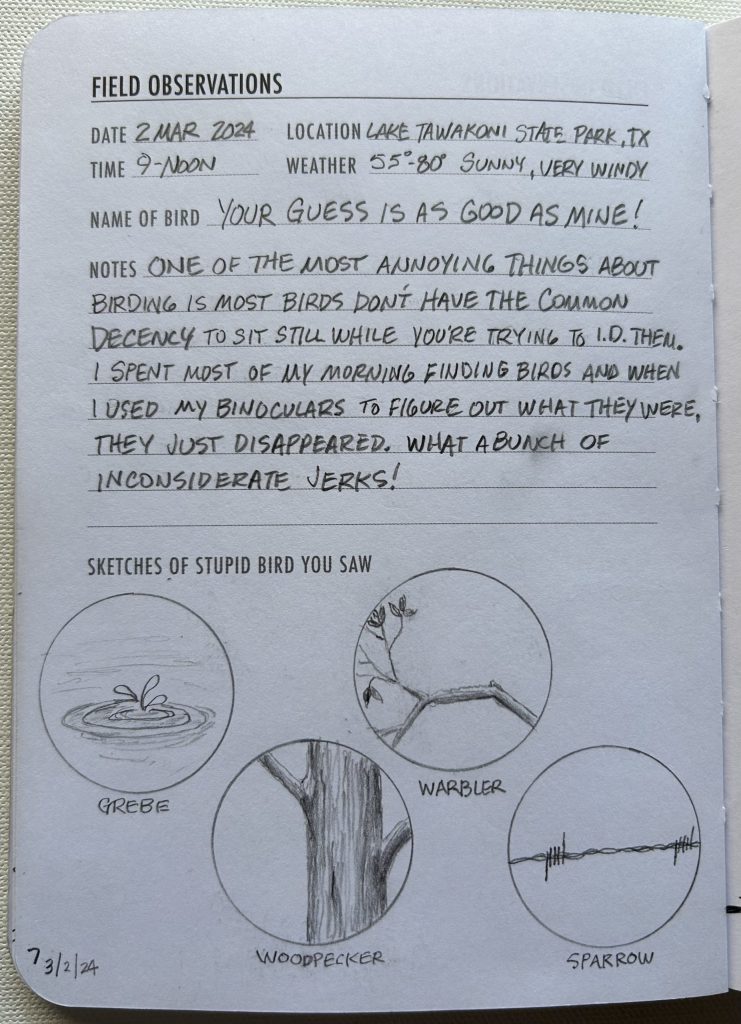 FIELD OBSERVATIONS
DATE 2 MAR 2024 LOCATION LAKE TAWAKONI STATE PARK, TX
TIME 9-NOON WEATHER 55°-80° SUNNY, VERY WINDY
NAME OF BIRD YOUR GUESS IS AS GOOD AS MINE!
NOTES ONE OF THE MOST ANNOYING THINGS ABOUT
BIRDING IS MOST BIRDS DON'T HAVE THE COMMON
DECENCY TO SIT STILL WHILE YOU'RE TRYING TO I.D. THEM.
I SPENT MOST OF MY MORNING FINDING BIRDS AND WHEN
I USED MY BINOCULARS TO FIGURE OUT WHAT THEY WERE,
THEY JUST DISAPPEARED. WHAT A BUNCH OF
INCONSIDERATE JERKS!
SKETCHES OF STUPID BIRD YOU SAW
GREBE
WARBLER
WOODPECKER
SPARROW
7 3/2/24